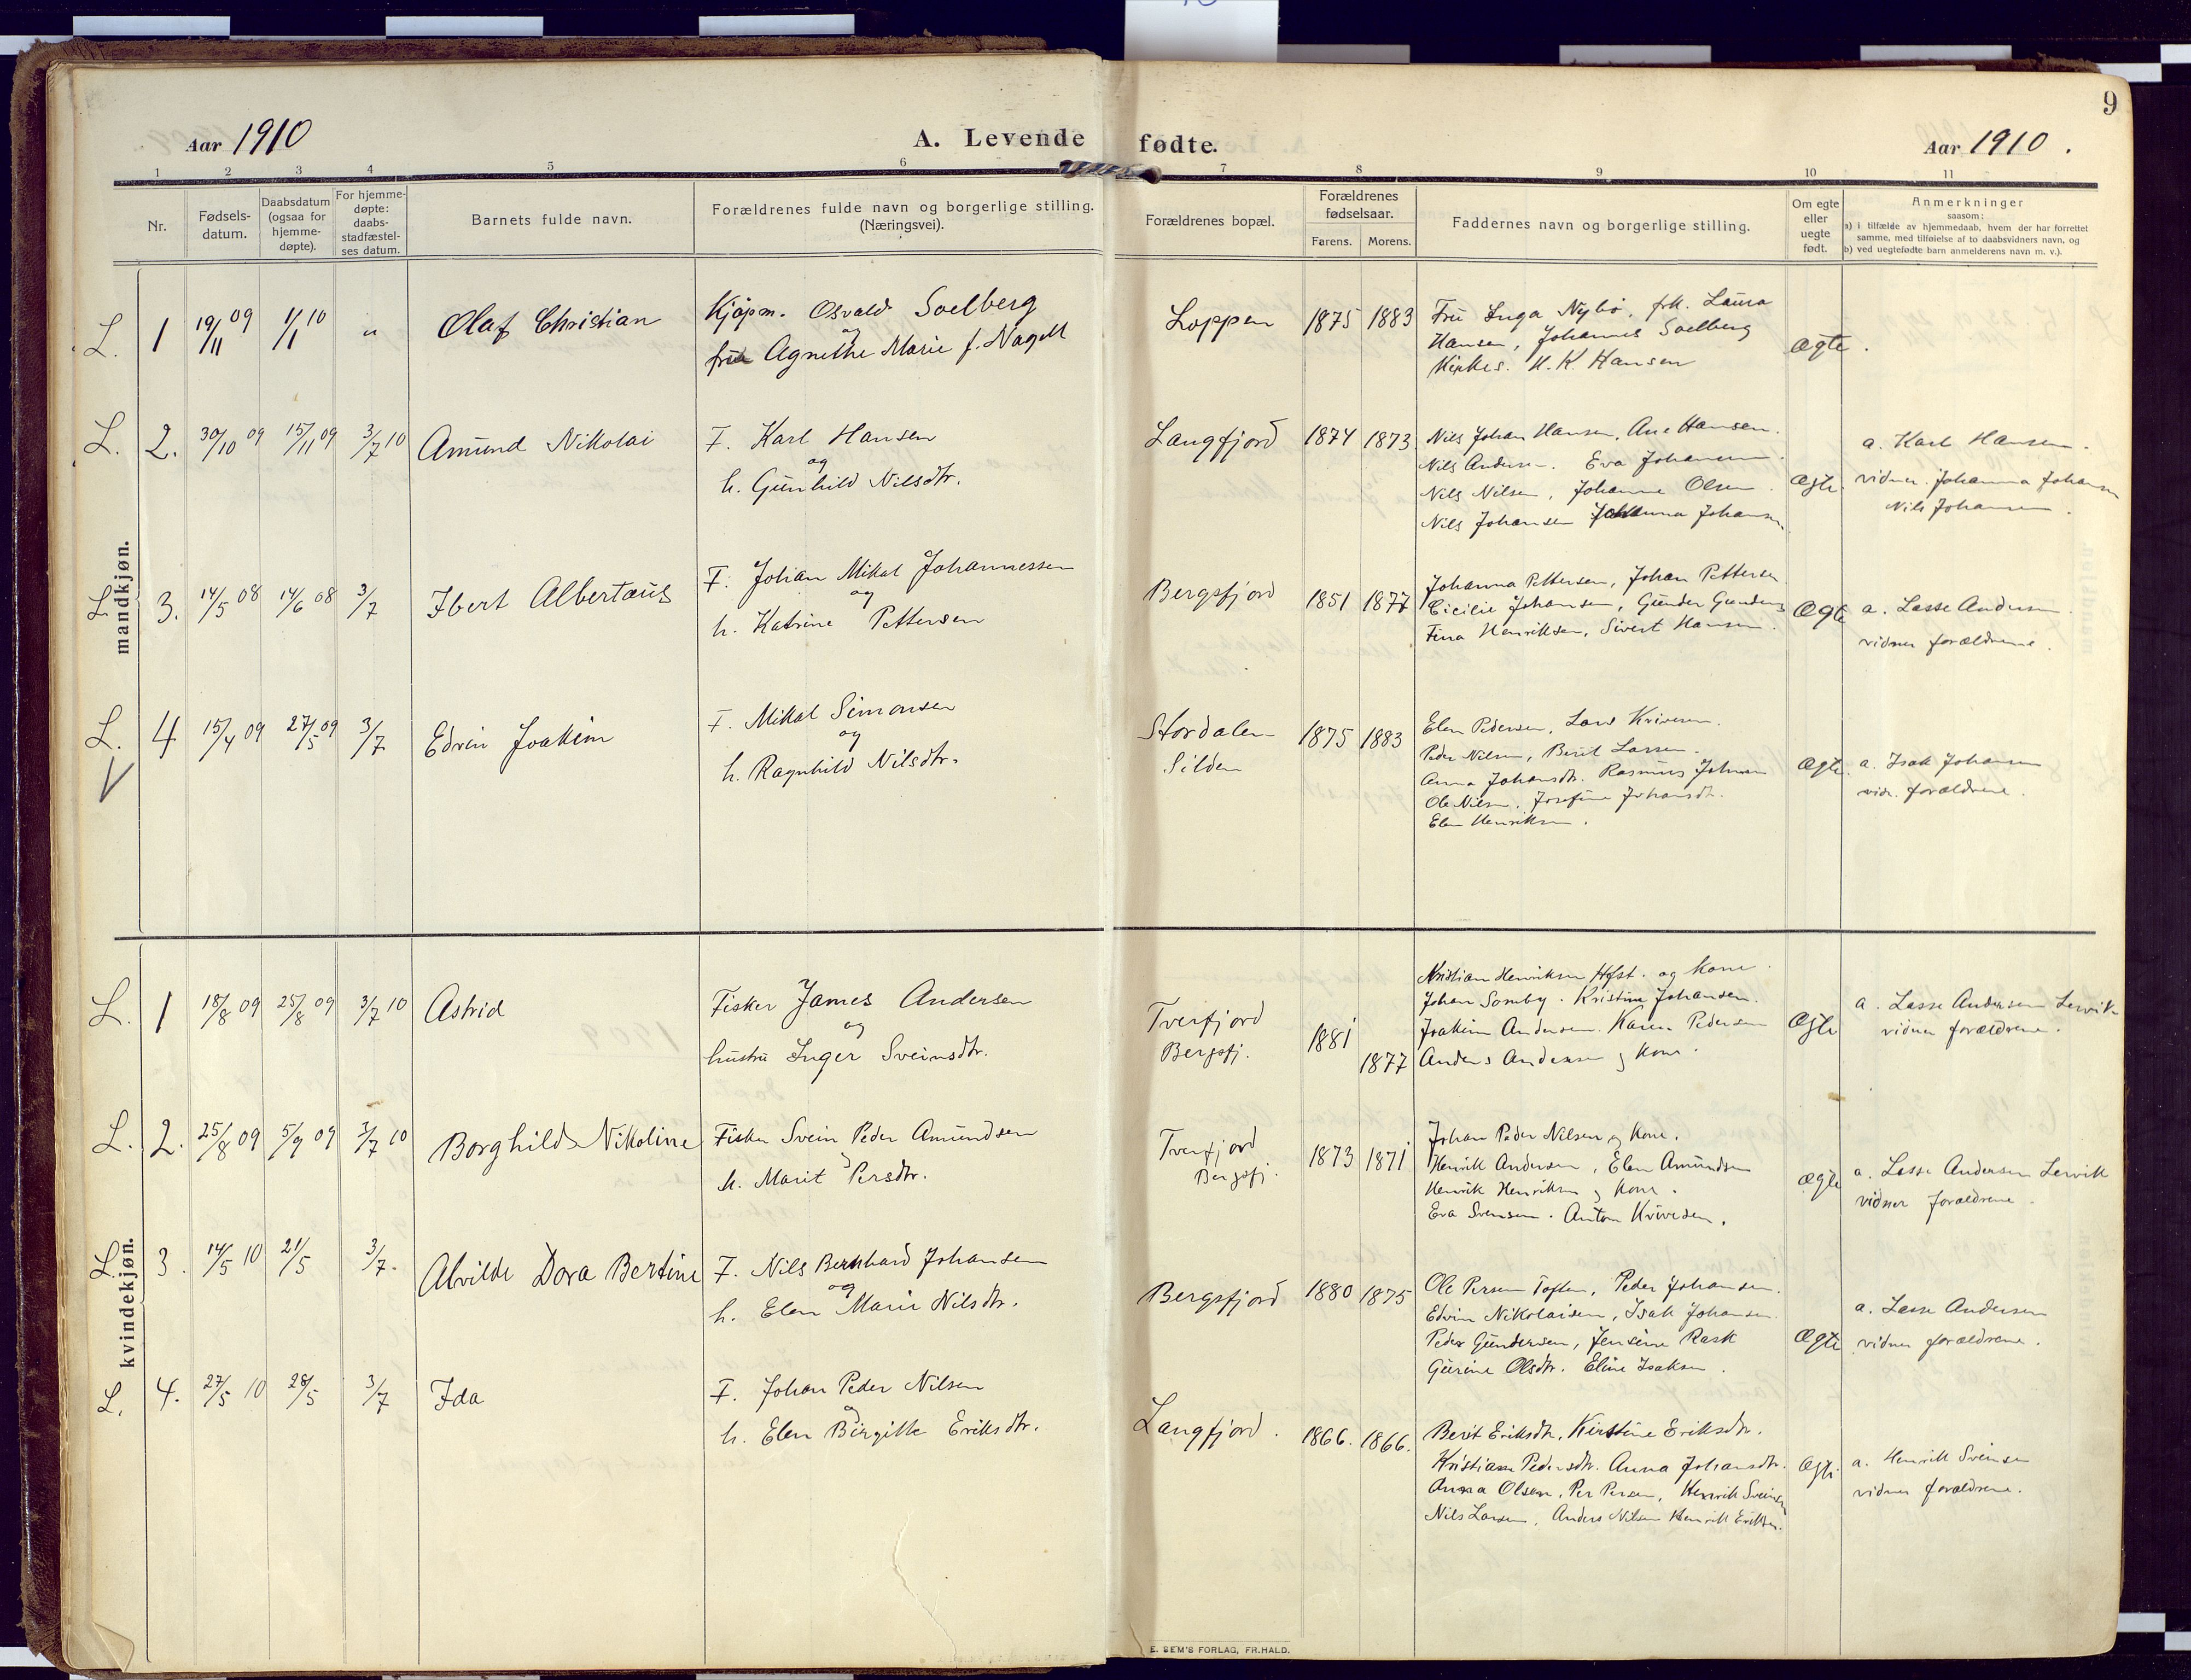 9
Aar 1910
A. Levende fødte.
Aar 1910.
1 2 3 4 5 6 7 8 9 10 11
Nr.
Fødsels-
datum.
Daabsdatum
(ogsaa for
hjemme-
døpte).
For hjemme-
døpte:
daabs-
stadfæstel-
ses datum.
Barnets fulde navn.
Forældrenes fulde navn og borgerlige stilling.
(Næringsvei).
Forældrenes bopæl.
Forældrenes
fødselsaar.
Farens. Morens.
Faddernes navn og borgerlige stilling.
Om egte
eller
uegte
født.
Anmerkninger
saasom:
a) i tilfælde av hjemmedaab, hvem der har forrettet
samme, med tilføielse af to daabsvidners navn, og
b) ved uegtefødte barn anmelderens navn m. v.).
mandkjøn.
L. 1 19/11 09 1/1 10 " Olaf Christian
Kjøpm. Osvald Soelberg
og
frue Agnethe Marie f. Nagell
Loppen 1875 1883
Fru Inga Nybø, frk. Laura
Hansen, Johannes Soelberg
Kirkes. H. K. Hansen
Ægte.
L. 2. 30/10 09 15/11 09 3/7 10 Amund Nikolai
F. Karl Hansen
og
h. Gunhild Nilsdtr.
Langfjord 1874 1873
Nils Johan Hansen, Ane Hansen.
Nils Andersen. Eva Johansen.
Nils Nilsen, Johanne Olsen.
Nils Johansen Johanna Johansen.
Ægte.
a. Karl Hansen.
vidner. Johanna Johansen
Nils Johansen.
L. 3. 14/5 08 14/6 08 3/7 Ibert Albertaus
F. Johan Mikal Johannessen
og
h. Katrine Pettersen
Bergsfjord 1851 1877
Johanna Pettersen, Johan Pettersen
Cicilie Johansen, Gunder Gunders
Fina Henriksen, Sivert Hansen.
Ægte
a. Lasse Andersen.
vidner forældrene.
L. 4 15/4 09 27/5 09 3/7 Edvin Joakim
F. Mikal Simonsen
og
h. Ragnhild Nilsdtr.
Stordalen
Silden
1875 1883
Elen Pedersen, Lars Kvivesen.
Peder Nilsen, Berit Larsen.
Anna Johansdtr. Rasmus Johansen
Ole Nilsen, Josefine Johansdtr.
Elen Henriksen.
Ægte.
a. Isak Johansen
vidn. forældrene.
kvindekjøn.
L. 1 18/8 09 25/8 09 3/7 10 Astrid
Fisker James Andersen
og
hustru Inger Sveinsdtr.
Tverfjord
Bergsfj.
1881 1877
Kristian Henriksen Hofst. og Kone.
Johan Somby. Kristine Johansen.
Joakim Andersen. Karen Pedersen
Anders Andersen og Kone.
Ægte
a. Lasse Andersen Lervik
vidner forældrene.
L. 2. 25/8 09 5/9 09 3/7 10 Borghild Nikoline
Fisker Svein Peder Amundsen
og
h. Marit Persdtr.
Tverfjord
Bergsfj.
1873 1871
Johan Peder Nilsen og Kone.
Henrik Andersen, Elen Amundsen
Henrik Henriksen og Kone.
Eva Svensen. Anton Kvivesen.
Ægte
a. Lasse Andersen Lervik
vidner forældrene.
L. 3. 14/5 10 21/5 3/7. Alvilde Dora Bertine
F. Nils Bernhard Johansen
og
h. Elen Marie Nilsdtr.
Bergsfjord 1880 1875
Ole Persen Toften, Peder Johansen.
Edvin Nikolaisen, Isak Johansen
Peder Gundersen, Jensine Rask
Gurine Olsdtr. Eline Isaksen.
Ægte
a. Lasse Andersen
vidner forældrene.
L. 4. 27/5 10 28/5 3/7 Ida
F. Johan Peder Nilsen
og
h. Elen Birgitte Eriksdtr.
Langfjord. 1866. 1866.
Berit Eriksdtr, Kirstine Eriksdtr.
Kristiane Pedersdtr. Anna Johansdtr.
Anna Olsen, Per Persen, Henrik Sveinsen
Nils Larsen, Anders Nilsen Henrik Eriksen.
Ægte
a. Henrik Sveinsen
vidner forældrene.
E. SEM'S FORLAG, FR.HALD.